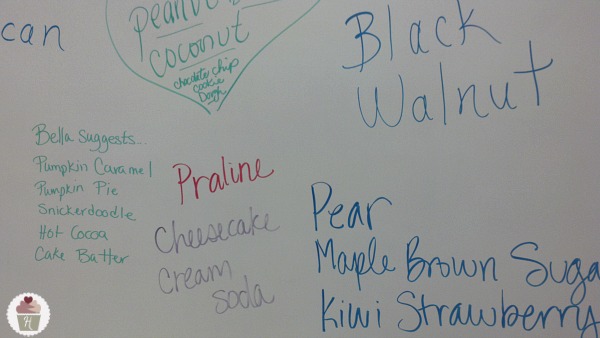 can
peanut
coconut
chocolate chip
cookie
Dough
Black
Walnut
Bella Suggests...
Pumpkin Caramel
Pumpkin Pie
Snickerdoodle
Hot Cocoa
Cake Batter
Praline
Cheesecake
Cream
soda
Pear
Maple Brown Suga
Kiwi Strawberry
H